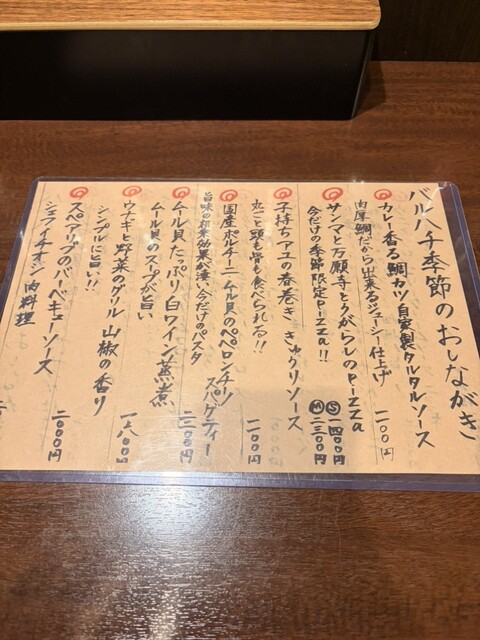 バルハチ季節のおしながき
カレー香る鯛カツ自家製タルタルソース
肉厚鯛だから出来るジューシー仕上げ
一一〇〇円
サンマと万願寺とうがらしのPizza
今だけの季節限定Pizza!!
Ⓢ一四〇〇円
Ⓜ二三〇〇円
子持ちアユの春巻き きゅうりソース
丸ごと頭も骨も食べられる!!
一一〇〇円
国産ポルチーニ ムール貝のペペロンチーノ
スパゲティー
旨味の相乗効果が凄い今だけのパスタ
二二〇〇円
ムール貝たっぷり白ワイン蒸煮
ムール貝のスープが旨い
ウナギと野菜のグリル 山椒の香り
シンプルに旨い!!
一八〇〇円
スペアリブのバーベキューソース
シェフイチオシ肉料理
二〇〇〇円